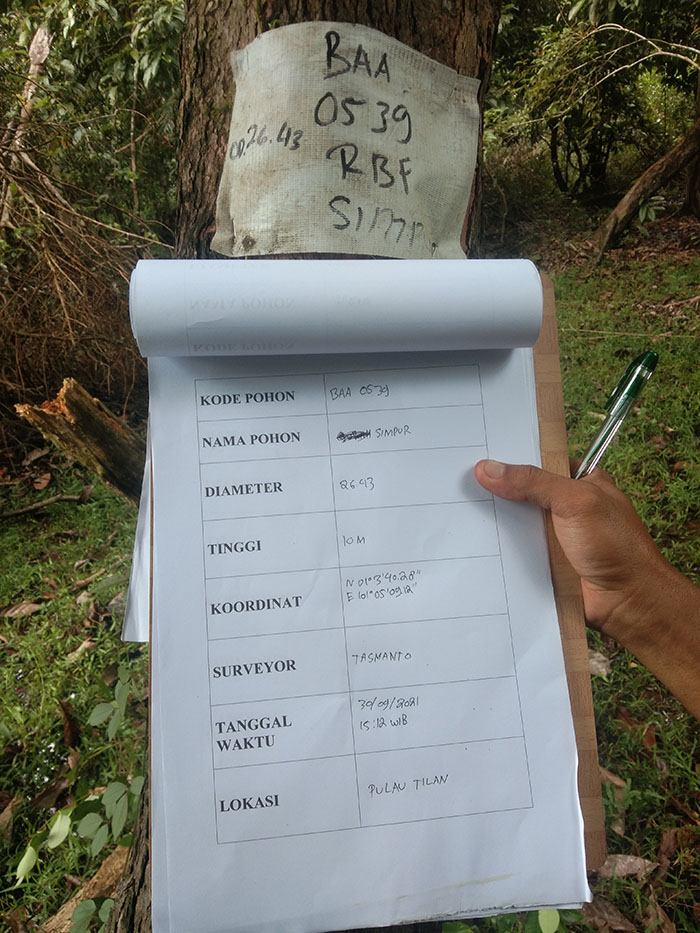 BAA
0539
26.43
RBF
SIMP
KODE POHON BAA 0539
NAMA POHON SIMPUR
DIAMETER 26.43
TINGGI 10 M
KOORDINAT N 01°3'40.28"
E 101°05'09.12"
SURVEYOR TASMANTO
TANGGAL 30/09/2021
WAKTU 15:12 WIB
LOKASI PULAU TILAN